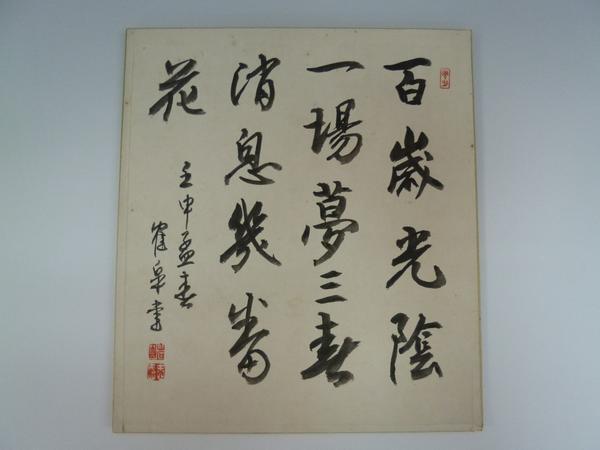 百歳光陰
一場夢三春
消息幾番
花
壬申孟春
隺皋書